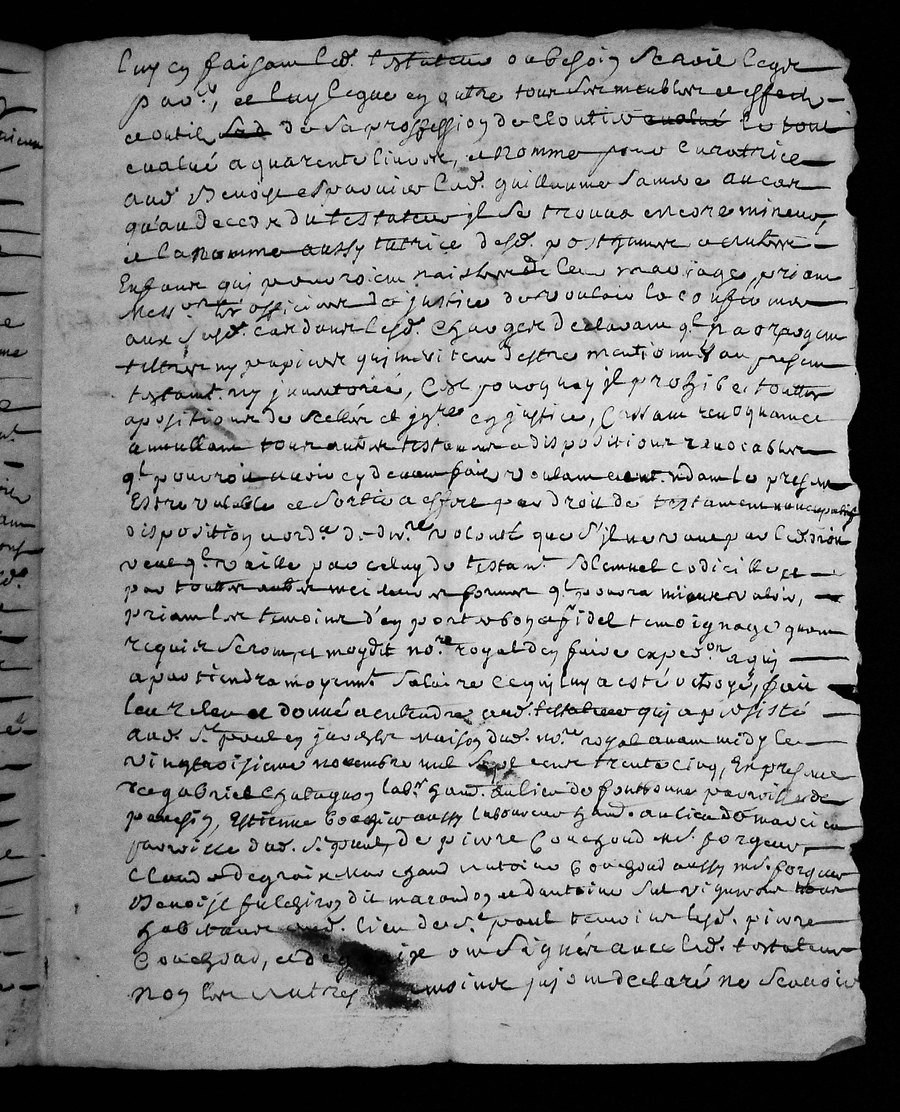 luy en faisant led. testateur au besoin de nouveau legat
par.^t, et luy legue en outre tous ses meubles et effects
et outils de sa proffession de cloutier le tout
evalué a quarente livres, et nomme pour curatrice
aud. Benoist espaonier lad. guillaume au cas
qu'au deced du testateur il se trouva encore mineur,
et la nomme aussy tutrice desd. posthumes et autres
Enfans qui pourroient naistre de leur mariage, priant
Mess.^rs les officiers de justice de vouloir la confirmer
aux susd. cas dans lesd. charges declarant q.^l n'a or argent
tiltres ny papiers qui meritent d'estre mentionnés au present
testam.^t ny inventorié, C'est pourquoy il prohibe touttes
apositions de scellés et jn.^re en justice, Cassant revoquant et
annullant tous autres testaments et dispositions revocables
q.^l pourroit avoir cy devant fait voulant et entendant le present
Estre valable et sortir a effect par droit de testament nuncupatif
disposition et ord.^e de der.^re volonté que s'il ne vaut par led. droit
veut q.^l vaille par celuy de testam.^t solemnel codicille et
par touttes autres meilleures formes q.^l pourra mieux valoir,
priant les temoins d'en porter bon et fidel temoignage quand
requis seront, et moydit no.^re royal d'en faire exped.^on a qui
apartiendra moyen.^t salaire ce qui luy a esté octroyé, fait
leu releu et donné a entendre aud. testateur qui a persisté
aud. S.^t paul en jarest maison dud. no.^re royal avant midy le
vingtroisieme novembre mil sept cens trente cinq, En presence
de gabriel chataguon lab.^r hand. au lieu de fontbonne parroisse de
pavesin, Estienne aussy laboureur hand. au lieu de
parroisse dud. S.^t paul, de pierre Couchoud m.^e forgeur,
Claude degraix marchand antoine Couchoud aussy m.^e forgeur
Benoist fulchiron dit marandon et d'antoine tous
habitants aud. lieu de S.^t paul temoins lesd. pierre
Couchoud, et degraix ont signé avec led. testateur
non les autres temoins qui ont declaré ne scavoir